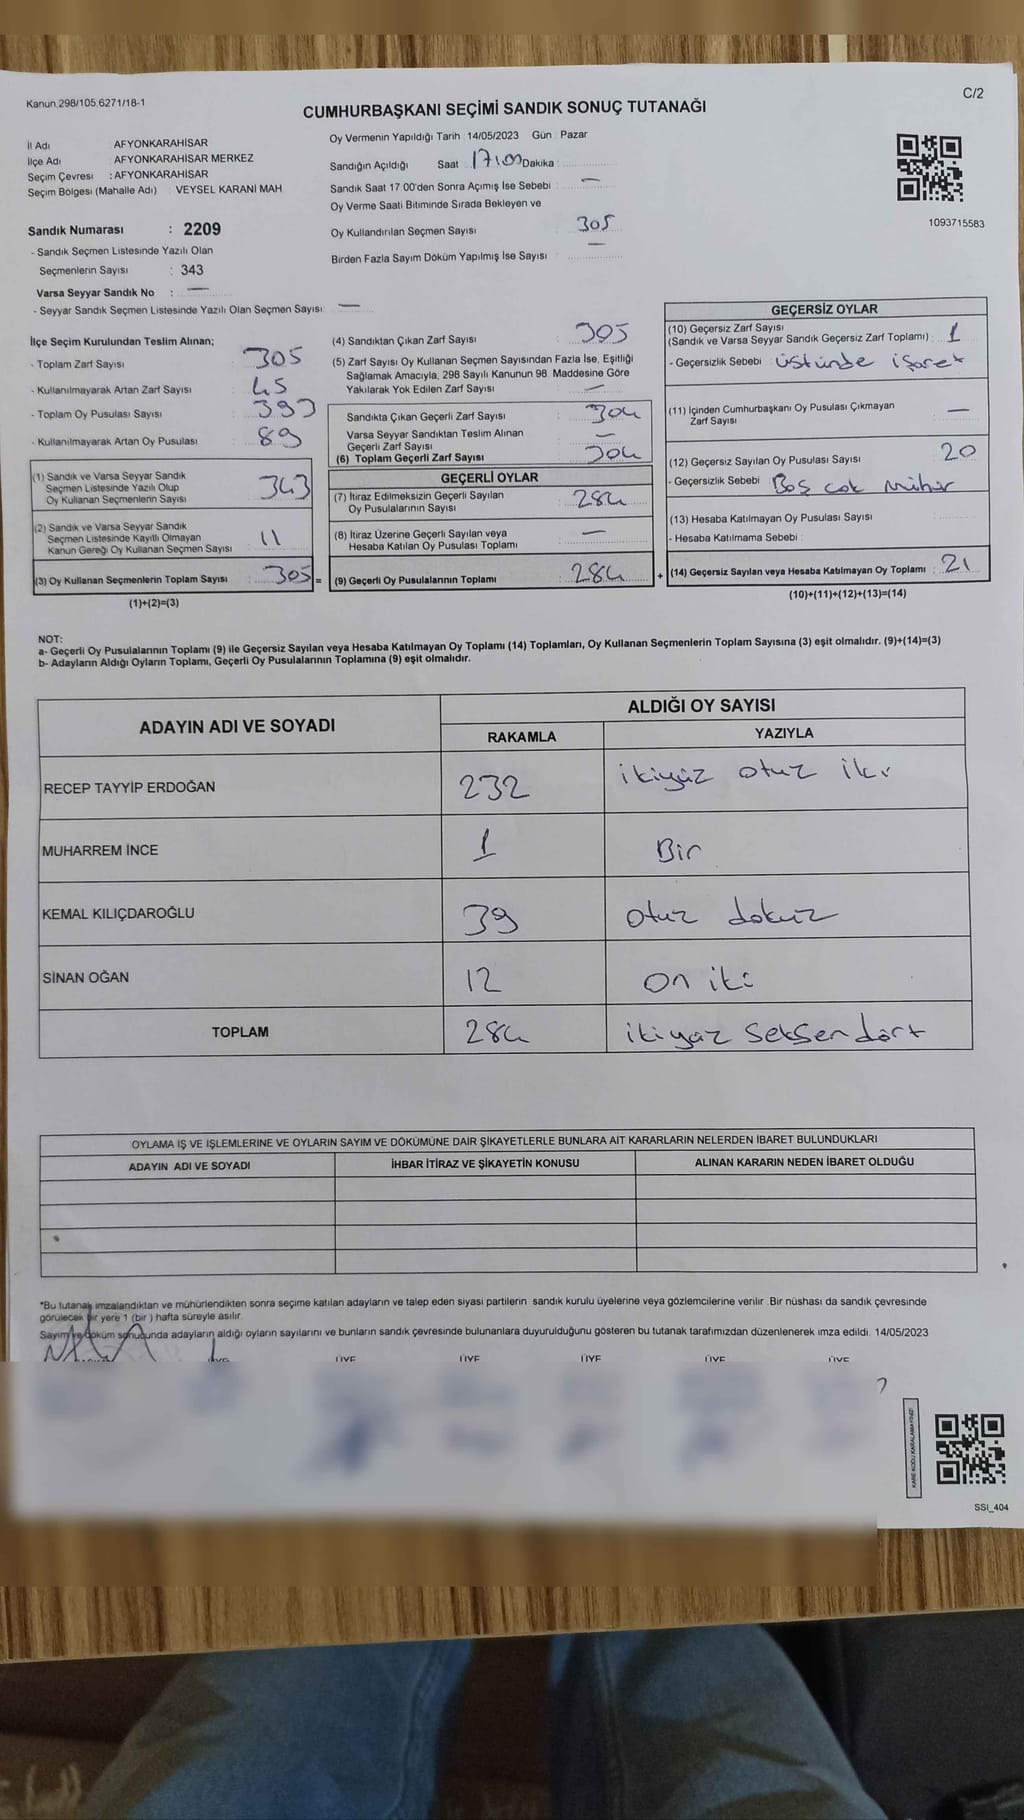 Kanun.298/105.6271/18-1
C/2
CUMHURBAŞKANI SEÇİMİ SANDIK SONUÇ TUTANAĞI
İl Adı AFYONKARAHİSAR
İlçe Adı : AFYONKARAHİSAR MERKEZ
Seçim Çevresi : AFYONKARAHİSAR
Seçim Bölgesi (Mahalle Adı) : VEYSEL KARANİ MAH
Sandık Numarası : 2209
- Sandık Seçmen Listesinde Yazılı Olan
Seçmenlerin Sayısı : 343
Varsa Seyyar Sandık No : —
- Seyyar Sandık Seçmen Listesinde Yazılı Olan Seçmen Sayısı: —
Oy Vermenin Yapıldığı Tarih :14/05/2023 Gün : Pazar
Sandığın Açıldığı Saat 17:00 Dakika :
Sandık Saat 17.00'den Sonra Açımış İse Sebebi : —
Oy Verme Saati Bitiminde Sırada Bekleyen ve
Oy Kullandırılan Seçmen Sayısı : 305
Birden Fazla Sayım Döküm Yapılmış İse Sayısı : —
1093715583
İlçe Seçim Kurulundan Teslim Alınan;
- Toplam Zarf Sayısı : 305
- Kullanılmayarak Artan Zarf Sayısı : 45
- Toplam Oy Pusulası Sayısı : 393
- Kullanılmayarak Artan Oy Pusulası : 89
(1) Sandık ve Varsa Seyyar Sandık
Seçmen Listesinde Yazılı Olup
Oy Kullanan Seçmenlerin Sayısı : 343
(2) Sandık ve Varsa Seyyar Sandık
Seçmen Listesinde Kayıtlı Olmayan
Kanun Gereği Oy Kullanan Seçmen Sayısı : 11
(3) Oy Kullanan Seçmenlerin Toplam Sayısı : 305 =
(1)+(2)=(3)
(4) Sandıktan Çıkan Zarf Sayısı : 305
(5) Zarf Sayısı Oy Kullanan Seçmen Sayısından Fazla İse, Eşitliği
Sağlamak Amacıyla, 298 Sayılı Kanunun 98. Maddesine Göre
Yakılarak Yok Edilen Zarf Sayısı : —
Sandıkta Çıkan Geçerli Zarf Sayısı : 304
Varsa Seyyar Sandıktan Teslim Alınan
Geçerli Zarf Sayısı : —
(6) Toplam Geçerli Zarf Sayısı : 304
GEÇERLİ OYLAR
(7) İtiraz Edilmeksizin Geçerli Sayılan
Oy Pusulalarının Sayısı : 284
(8) İtiraz Üzerine Geçerli Sayılan veya
Hesaba Katılan Oy Pusulası Toplamı : —
(9) Geçerli Oy Pusulalarının Toplamı : 284 +
GEÇERSİZ OYLAR
(10) Geçersiz Zarf Sayısı
(Sandık ve Varsa Seyyar Sandık Geçersiz Zarf Toplamı) : 1
- Geçersizlik Sebebi : üstünde işaret
(11) İçinden Cumhurbaşkanı Oy Pusulası Çıkmayan
Zarf Sayısı : —
(12) Geçersiz Sayılan Oy Pusulası Sayısı : 20
- Geçersizlik Sebebi : Boş çok mühür
(13) Hesaba Katılmayan Oy Pusulası Sayısı :
- Hesaba Katılmama Sebebi :
(14) Geçersiz Sayılan veya Hesaba Katılmayan Oy Toplamı : 21
(10)+(11)+(12)+(13)=(14)
NOT:
a- Geçerli Oy Pusulalarının Toplamı (9) ile Geçersiz Sayılan veya Hesaba Katılmayan Oy Toplamı (14) Toplamları, Oy Kullanan Seçmenlerin Toplam Sayısına (3) eşit olmalıdır. (9)+(14)=(3)
b- Adayların Aldığı Oyların Toplamı, Geçerli Oy Pusulalarının Toplamına (9) eşit olmalıdır.
ADAYIN ADI VE SOYADI ALDIĞI OY SAYISI
RAKAMLA YAZIYLA
RECEP TAYYİP ERDOĞAN 232 ikiyüz otuz iki
MUHARREM İNCE 1 Bir
KEMAL KILIÇDAROĞLU 39 otuz dokuz
SİNAN OĞAN 12 on iki
TOPLAM 284 ikiyüz seksen dört
OYLAMA İŞ VE İŞLEMLERİNE VE OYLARIN SAYIM VE DÖKÜMÜNE DAİR ŞİKAYETLERLE BUNLARA AİT KARARLARIN NELERDEN İBARET BULUNDUKLARI
ADAYIN ADI VE SOYADI İHBAR İTİRAZ VE ŞİKAYETİN KONUSU ALINAN KARARIN NEDEN İBARET OLDUĞU
*Bu tutanak imzalandıktan ve mühürlendikten sonra seçime katılan adayların ve talep eden siyasi partilerin sandık kurulu üyelerine veya gözlemcilerine verilir. Bir nüshası da sandık çevresinde
görülecek bir yere 1 (bir ) hafta süreyle asılır.
Sayım ve döküm sonucunda adayların aldığı oyların sayılarını ve bunların sandık çevresinde bulunanlara duyurulduğunu gösteren bu tutanak tarafımızdan düzenlenerek imza edildi. 14/05/2023
ÜYE ÜYE ÜYE ÜYE ÜYE ÜYE
KARE KODU KARALAMAYINIZ!
SSI_404